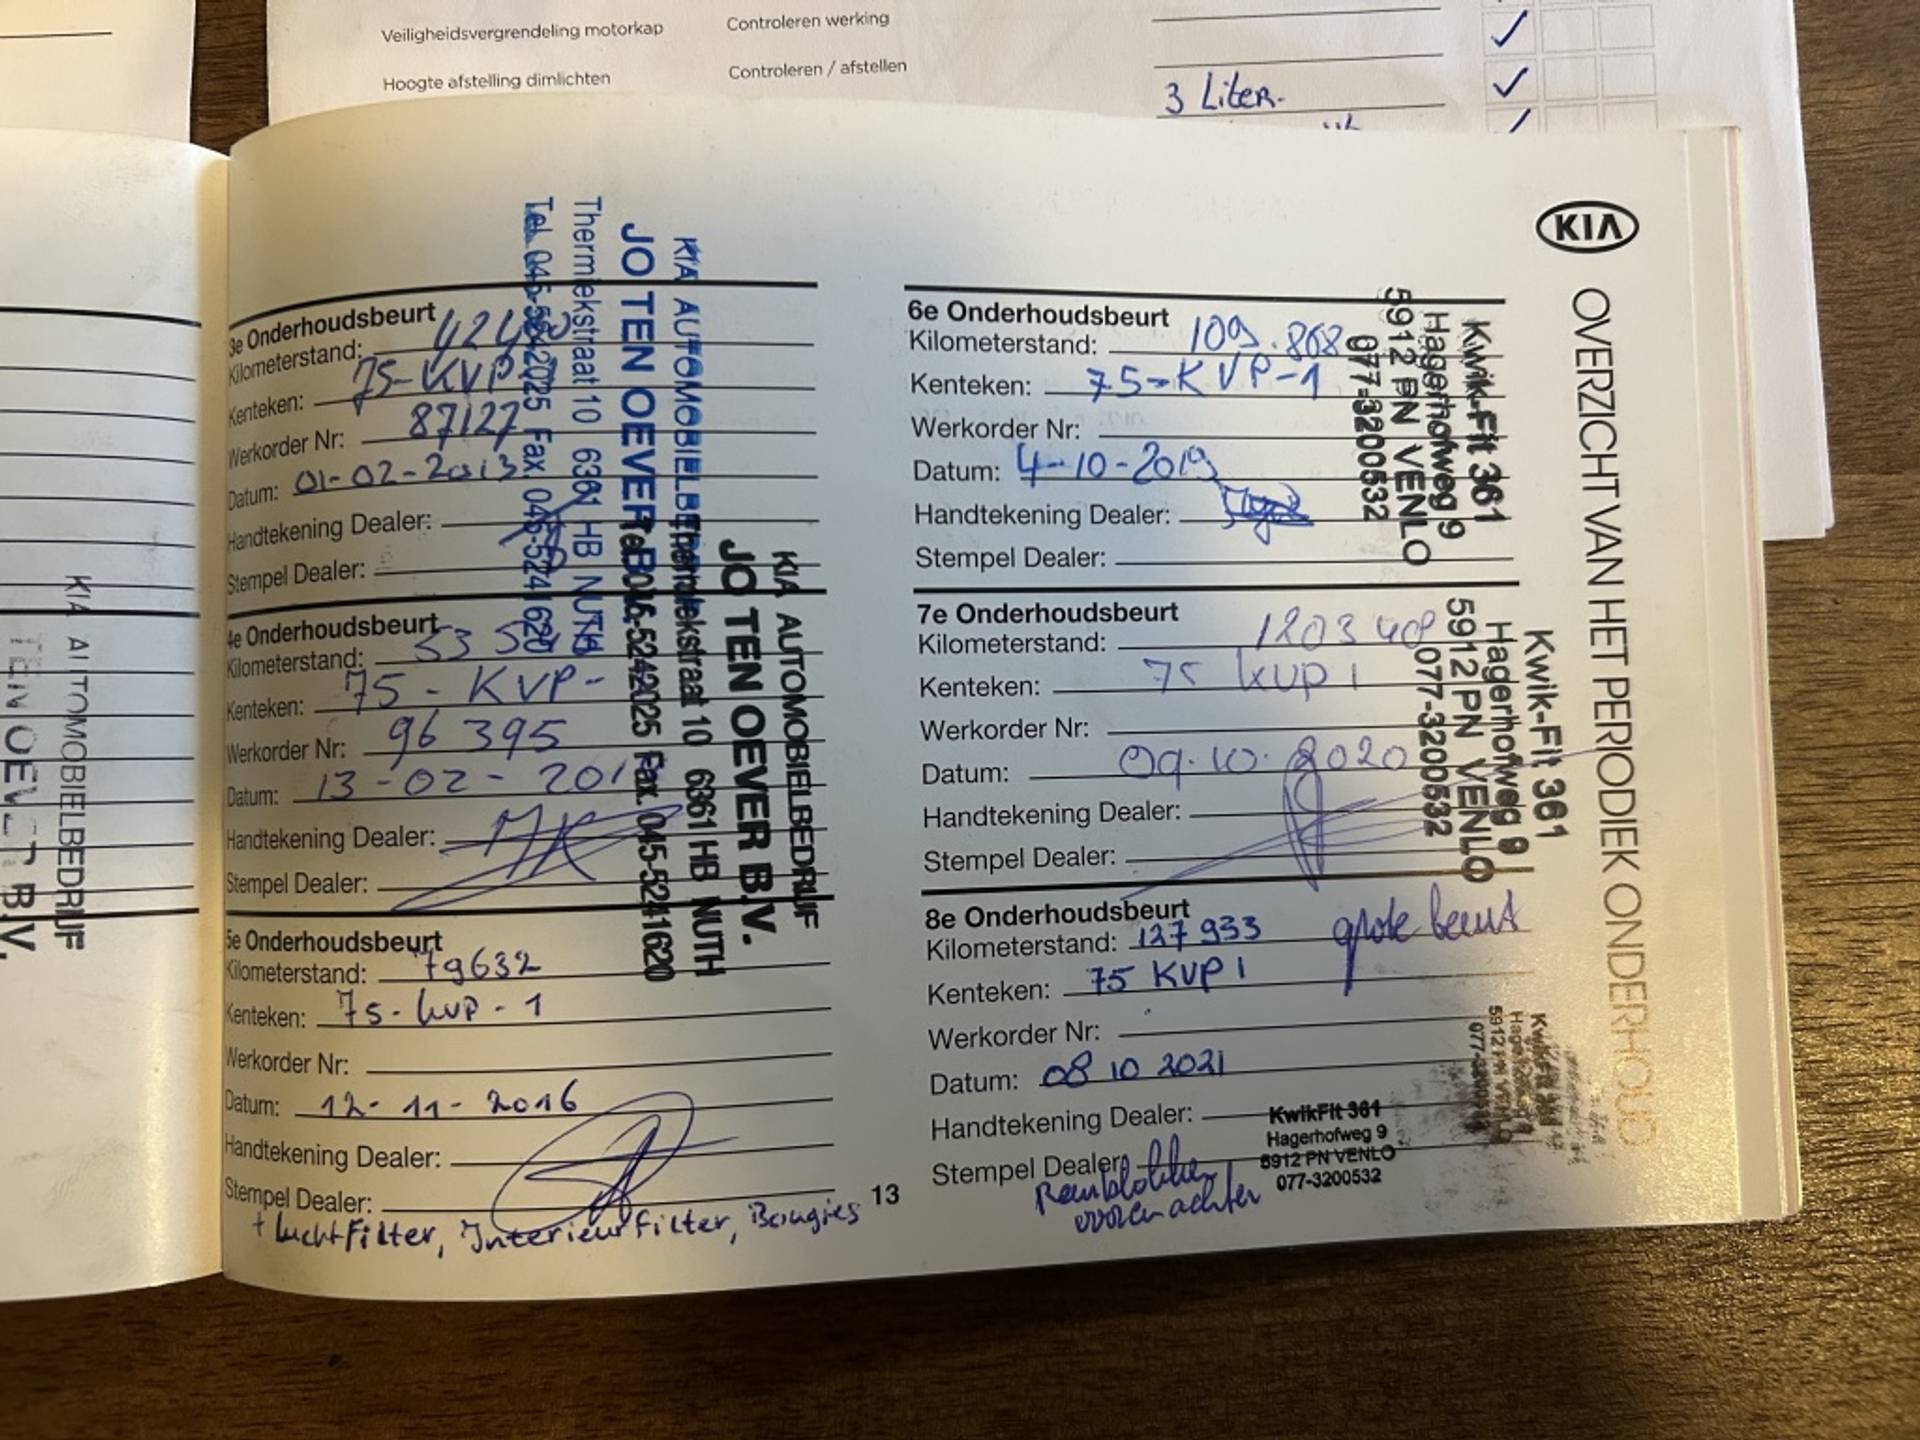 Veiligheidsvergrendeling motorkap Controleren werking
Hoogte afstelling dimlichten Controleren / afstellen
3 Liter.
KIA
OVERZICHT VAN HET PERIODIEK ONDERHOUD
3e Onderhoudsbeurt
Kilometerstand:
Kenteken: 75-KVP
Werkorder Nr: 87127
Datum: 01-02-2013
Handtekening Dealer:
Stempel Dealer:
KIA AUTOMOBIELBE
JO TEN OEVER B
Thermiekstraat 10 6361 HB NUTH
Tel. 045-5242025 Fax. 045-5241620
4e Onderhoudsbeurt
Kilometerstand:
Kenteken: 75-KVP-
Werkorder Nr: 96395
Datum: 13-02-201
Handtekening Dealer:
Stempel Dealer:
KIA AUTOMOBIELBEDRIJF
JO TEN OEVER B.V.
Thermiekstraat 10 6361 HB NUTH
Tel. 045-5242025 Fax. 045-5241620
5e Onderhoudsbeurt
Kilometerstand: 79632
Kenteken: 75-kvp-1
Werkorder Nr:
Datum: 12-11-2016
Handtekening Dealer:
Stempel Dealer:
+ Luchtfilter, Interieurfilter, Bougies
13
6e Onderhoudsbeurt
Kilometerstand: 109.868
Kenteken: 75-KVP-1
Werkorder Nr:
Datum: 4-10-2019
Handtekening Dealer:
Stempel Dealer:
Kwik-Fit 361
Hagerhofweg 9
5912 PN VENLO
077-3200532
7e Onderhoudsbeurt
Kilometerstand: 120340
Kenteken: 75 kvp 1
Werkorder Nr:
Datum: 09.10.2020
Handtekening Dealer:
Stempel Dealer:
Kwik-Fit 361
Hagerhofweg 9
5912 PN VENLO
077-3200532
8e Onderhoudsbeurt
Kilometerstand: 127933 grote beurt
Kenteken: 75 KVP 1
Werkorder Nr:
Datum: 08 10 2021
Handtekening Dealer:
Stempel Dealer:
KwikFit 361
Hagerhofweg 9
5912 PN VENLO
077-3200532
Remblokken
voor en achter
KIA AUTOMOBIELBEDRIJF
TEN OEVER B.V.